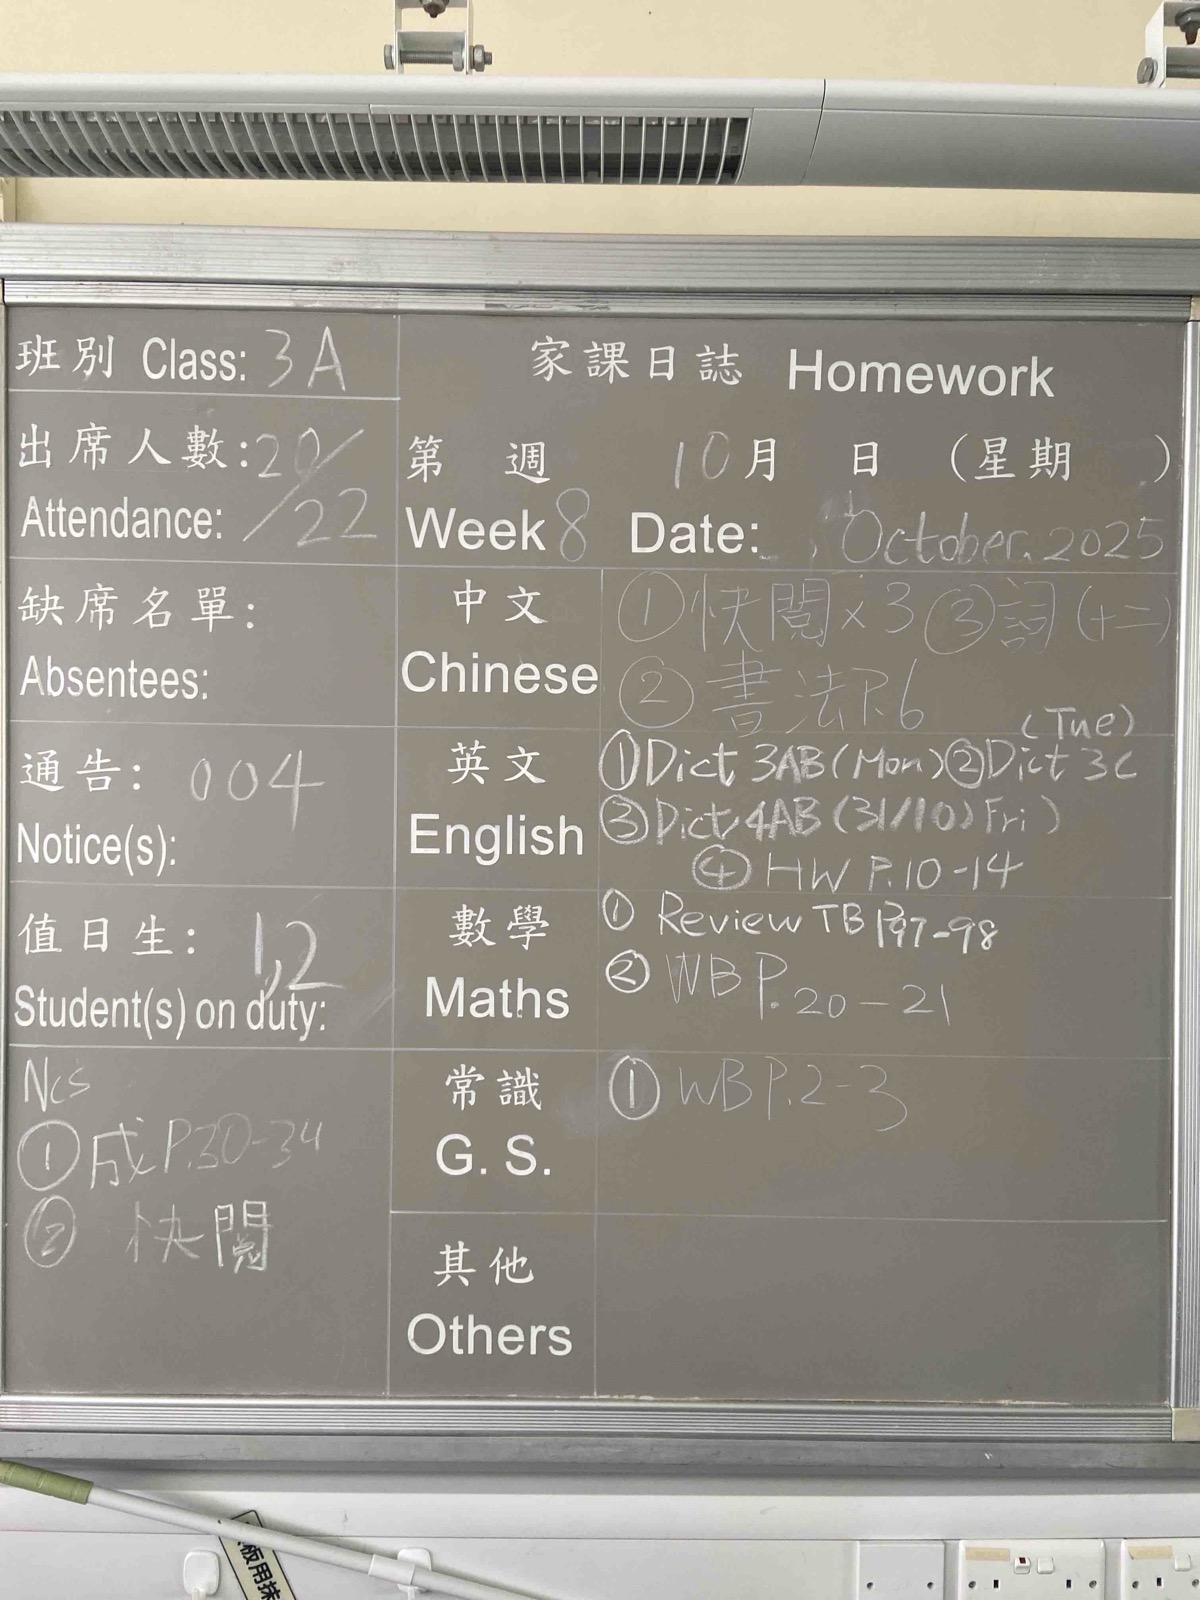 班別 Class: 3A
出席人數: 20/
Attendance: /22
缺席名單:
Absentees:
通告: 004
Notice(s):
值日生: 1,2
Student(s) on duty:
NCS
① 成 P.30-34
② 快閱
家課日誌 Homework
第 週 10月 日 (星期 )
Week 8 Date: October. 2025
中文
Chinese
① 快閱 x 3 ③ 詞 (十二)
② 書法P.6
英文
English
(Tue)
① Dict 3AB (Mon) ② Dict 3C
③ Dict 4AB (31/10) Fri )
④ HW P.10-14
數學
Maths
① Review TB P.97-98
② WB P.20-21
常識
G. S.
① WB P.2-3
其他
Others
板用抹